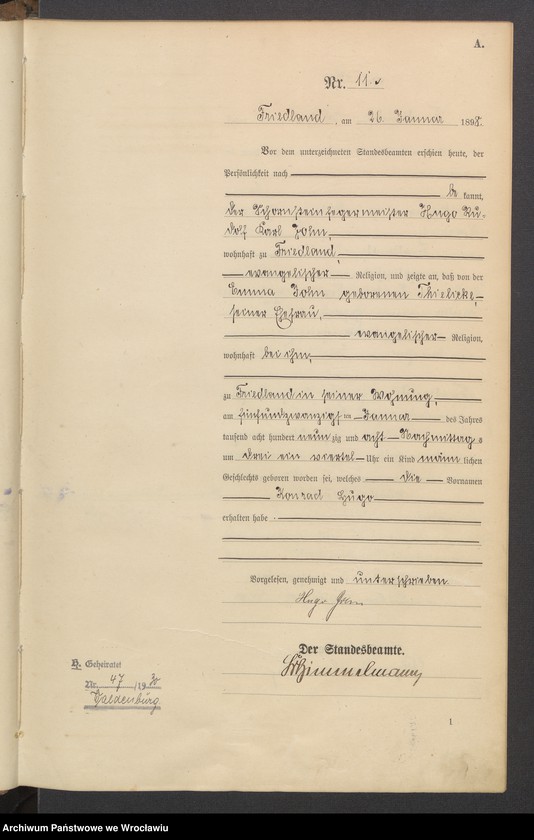 A.
Nr. 11.
Friedland, am 26. Januar 1898.
Vor dem unterzeichneten Standesbeamten erschien heute, der
Persönlichkeit nach
be kannt,
der Schornsteinfegermeister Hugo Ru-
dolf Karl John,
wohnhaft zu Friedland,
evangelischer Religion, und zeigte an, daß von der
Emma John geborenen Thielicke,
seiner Ehefrau,
evangelischer Religion,
wohnhaft bei ihm,
zu Friedland in seiner Wohnung,
am fünfundzwanzigsten Januar des Jahres
tausend acht hundert neunzig und acht Nachmittags
um drei ein viertel Uhr ein Kind männlichen
Geschlechts geboren worden sei, welches die Vornamen
Konrad Hugo
erhalten habe.
Vorgelesen, genehmigt und unterschrieben.
Hugo John
Der Standesbeamte.
H. Geheiratet
Nr. 47/1930
Waldenburg
1
Archiwum Państwowe we Wrocławiu